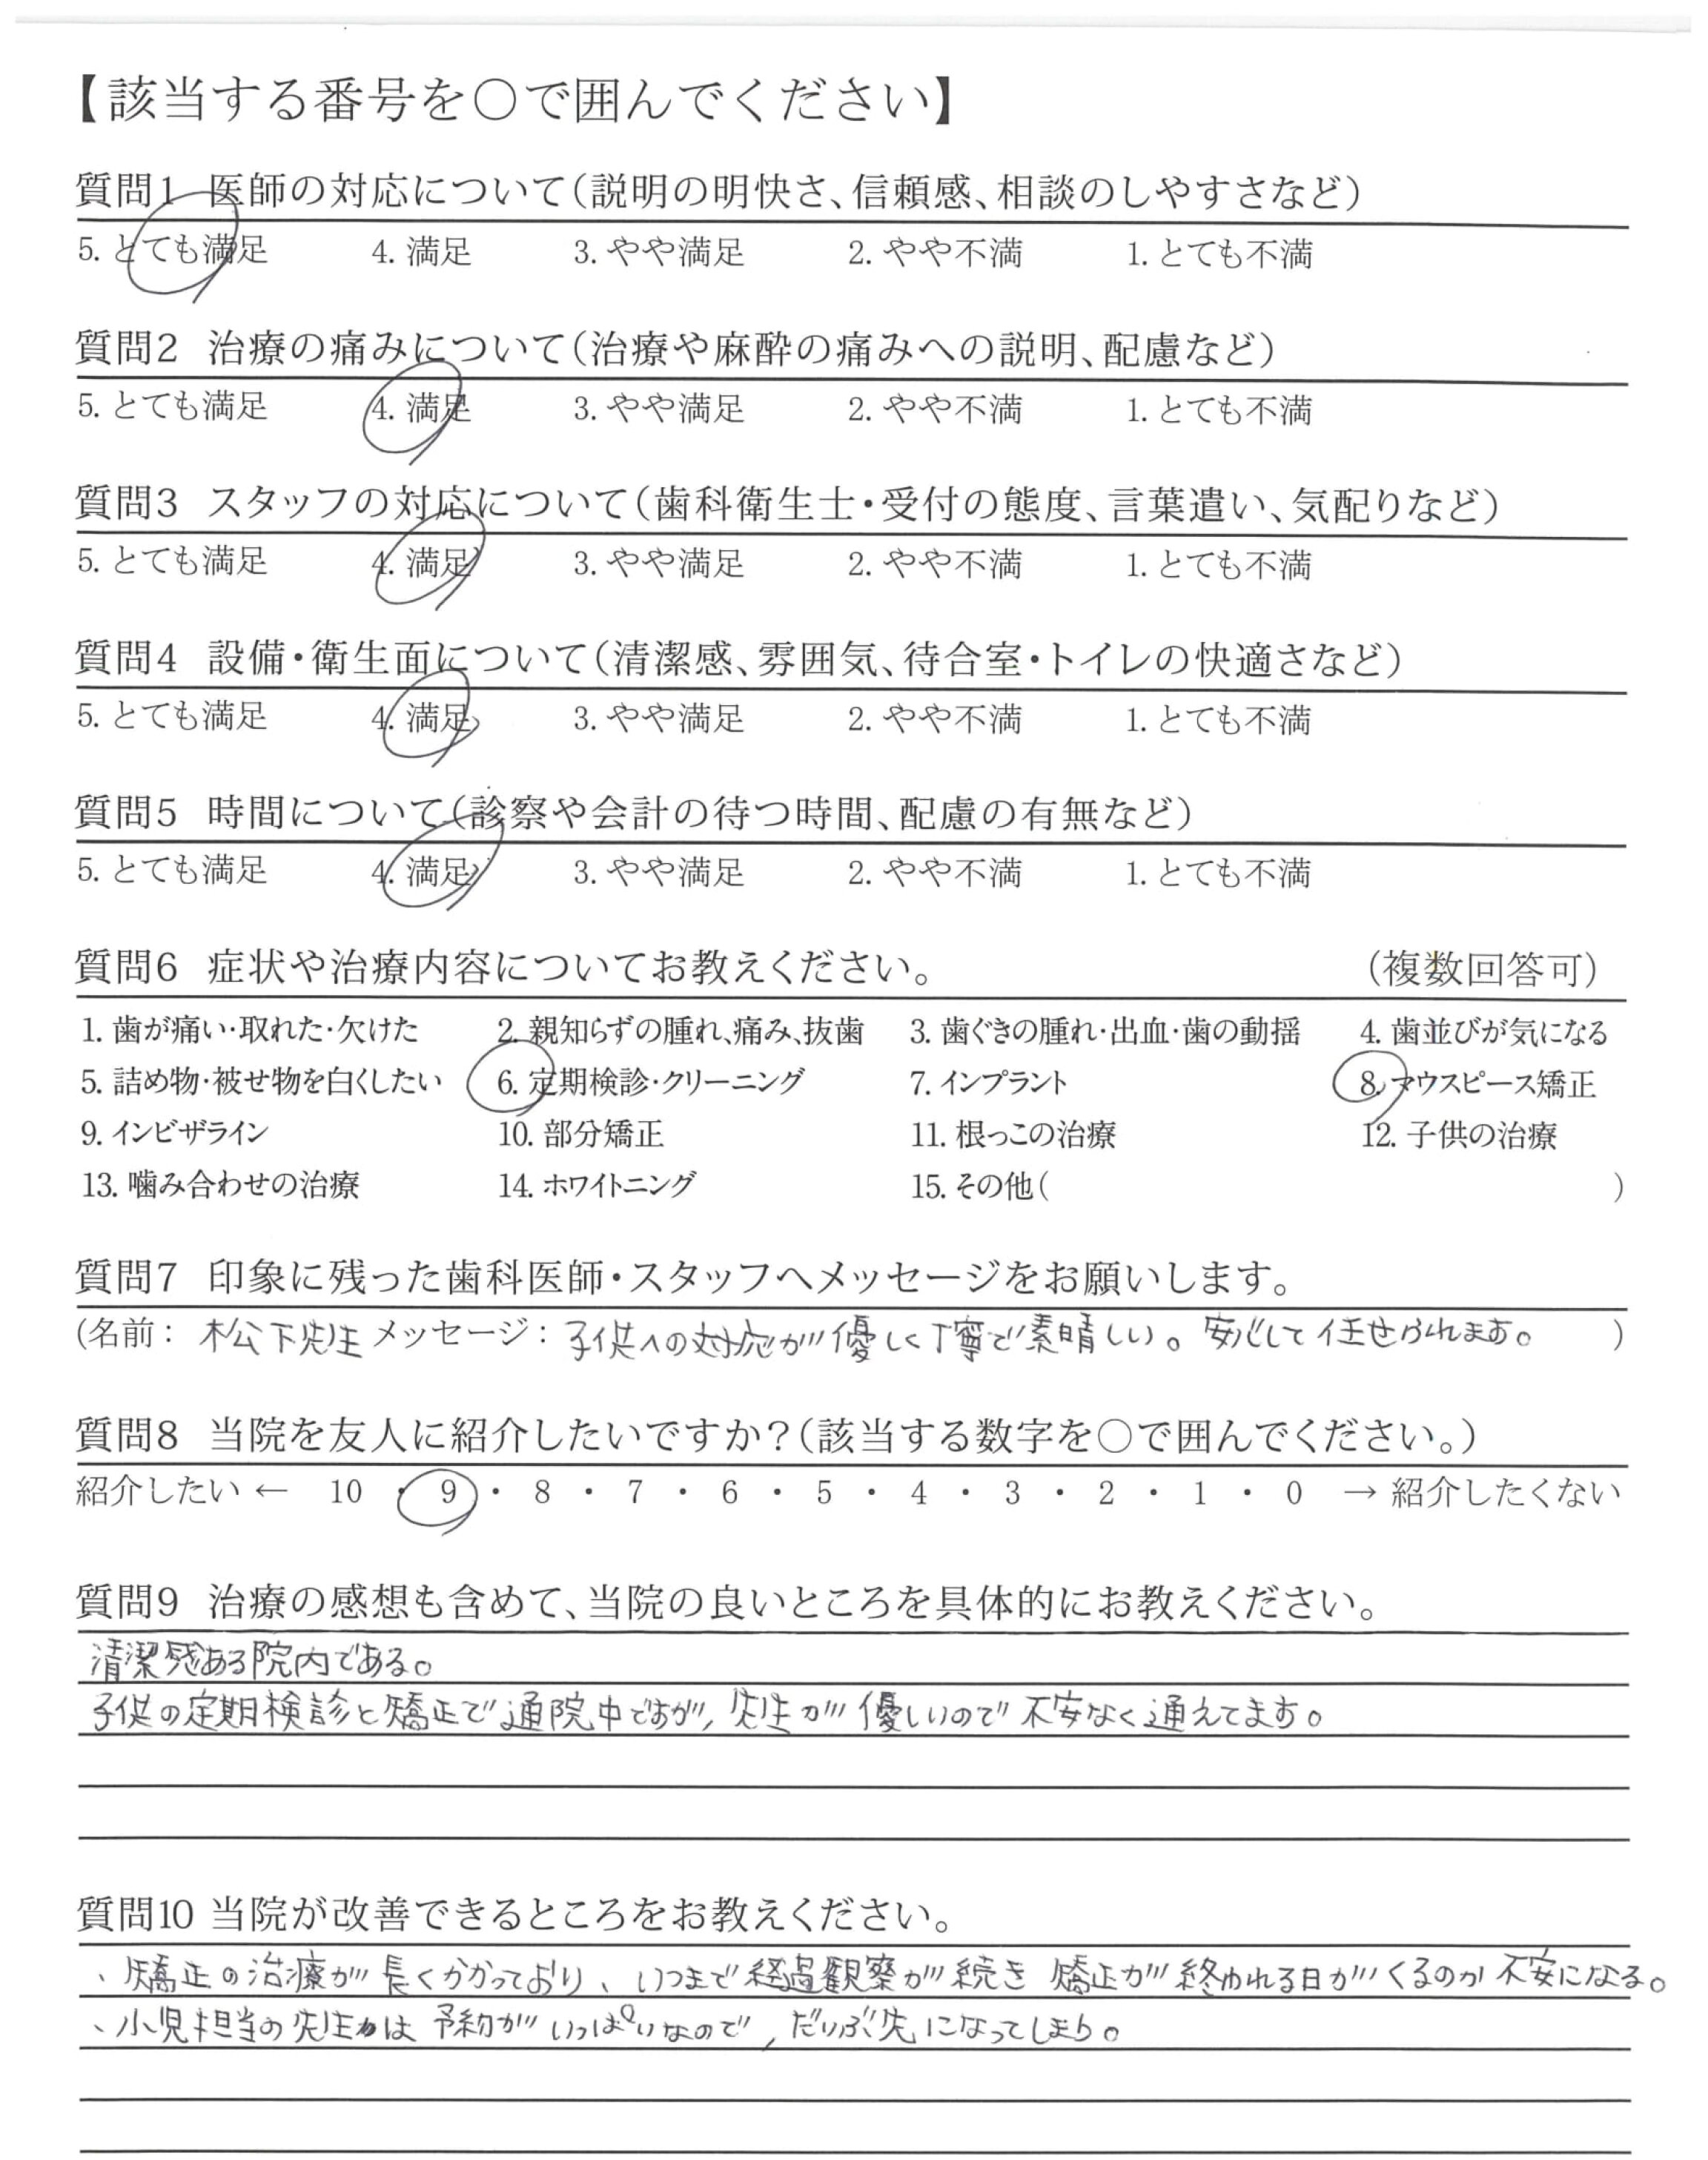 【該当する番号を○で囲んでください】
質問1 医師の対応について(説明の明快さ、信頼感、相談のしやすさなど)
5. とても満足 4. 満足 3. やや満足 2. やや不満 1. とても不満
質問2 治療の痛みについて(治療や麻酔の痛みへの説明、配慮など)
5. とても満足 4. 満足 3. やや満足 2. やや不満 1. とても不満
質問3 スタッフの対応について(歯科衛生士・受付の態度、言葉遣い、気配りなど)
5. とても満足 4. 満足 3. やや満足 2. やや不満 1. とても不満
質問4 設備・衛生面について(清潔感、雰囲気、待合室・トイレの快適さなど)
5. とても満足 4. 満足 3. やや満足 2. やや不満 1. とても不満
質問5 時間について(診察や会計の待つ時間、配慮の有無など)
5. とても満足 4. 満足 3. やや満足 2. やや不満 1. とても不満
質問6 症状や治療内容についてお教えください。 (複数回答可)
1. 歯が痛い・取れた・欠けた 2. 親知らずの腫れ、痛み、抜歯 3. 歯ぐきの腫れ・出血・歯の動揺 4. 歯並びが気になる
5. 詰め物・被せ物を白くしたい 6. 定期検診・クリーニング 7. インプラント 8. マウスピース矯正
9. インビザライン 10. 部分矯正 11. 根っこの治療 12. 子供の治療
13. 噛み合わせの治療 14. ホワイトニング 15. その他( )
質問7 印象に残った歯科医師・スタッフへメッセージをお願いします。
(名前: 松下先生 メッセージ: 子供への対応が優しく丁寧で素晴しい。安心して任せられます。 )
質問8 当院を友人に紹介したいですか?(該当する数字を○で囲んでください。)
紹介したい ← 10 ・ 9 ・ 8 ・ 7 ・ 6 ・ 5 ・ 4 ・ 3 ・ 2 ・ 1 ・ 0 → 紹介したくない
質問9 治療の感想も含めて、当院の良いところを具体的にお教えください。
清潔感ある院内である。
子供の定期検診と矯正で通院中ですが、先生が優しいので不安なく通えてます。
質問10 当院が改善できるところをお教えください。
、矯正の治療が長くかかっており、いつまで経過観察が続き 矯正が終われる日がくるのか不安になる。
、小児担当の先生は 予約がいっぱいなので、だいぶ先になってしまう。